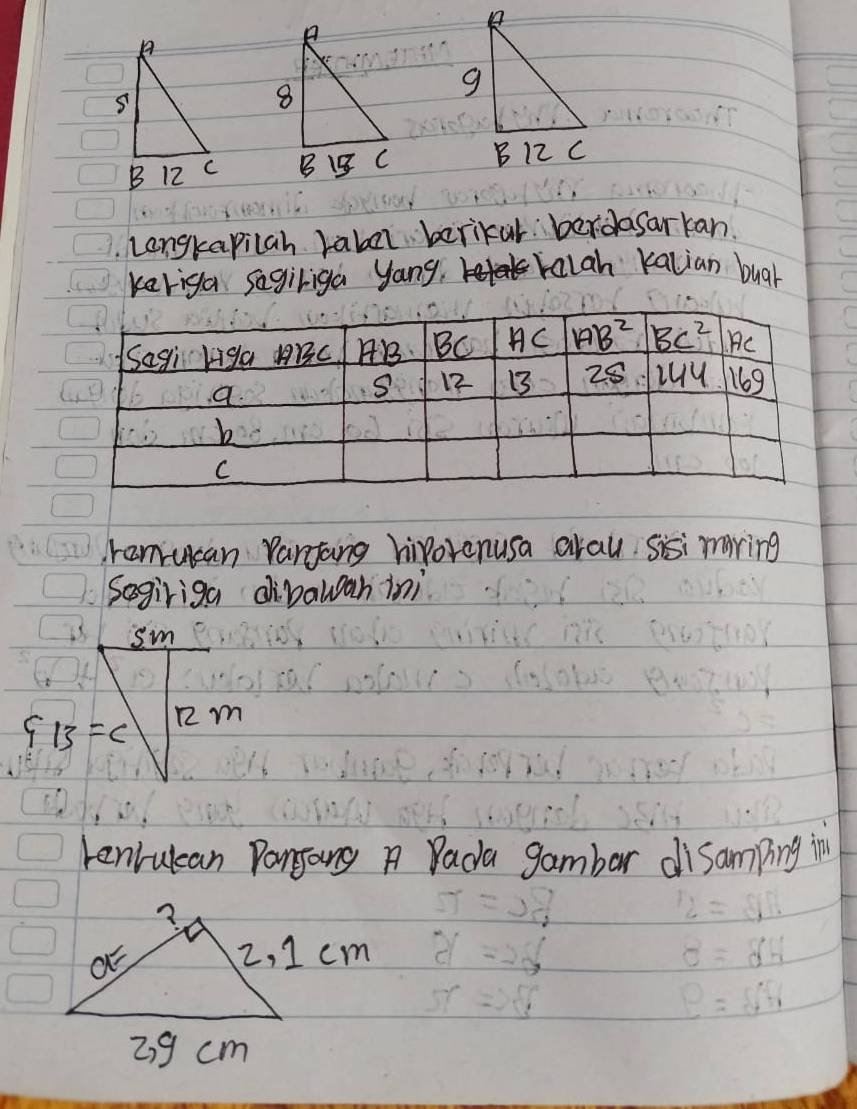 A A A
5 8 9
B 12 C B 15 C B 12 C
Lengkapilah tabel berikut berdasarkan
ketiga segitiga yang telah kalian buat
Segi tiga ABC AB BC AC AB² BC² AC
a 5 12 13 25 144 169
b
c
temtukan Panjang hipotenusa atau sisi miring
Segitiga dibawah ini
5m
12 m
13 = c
tentukan Panjang A Pada gambar disamping ini
?
a= 2,1 cm
2,9 cm